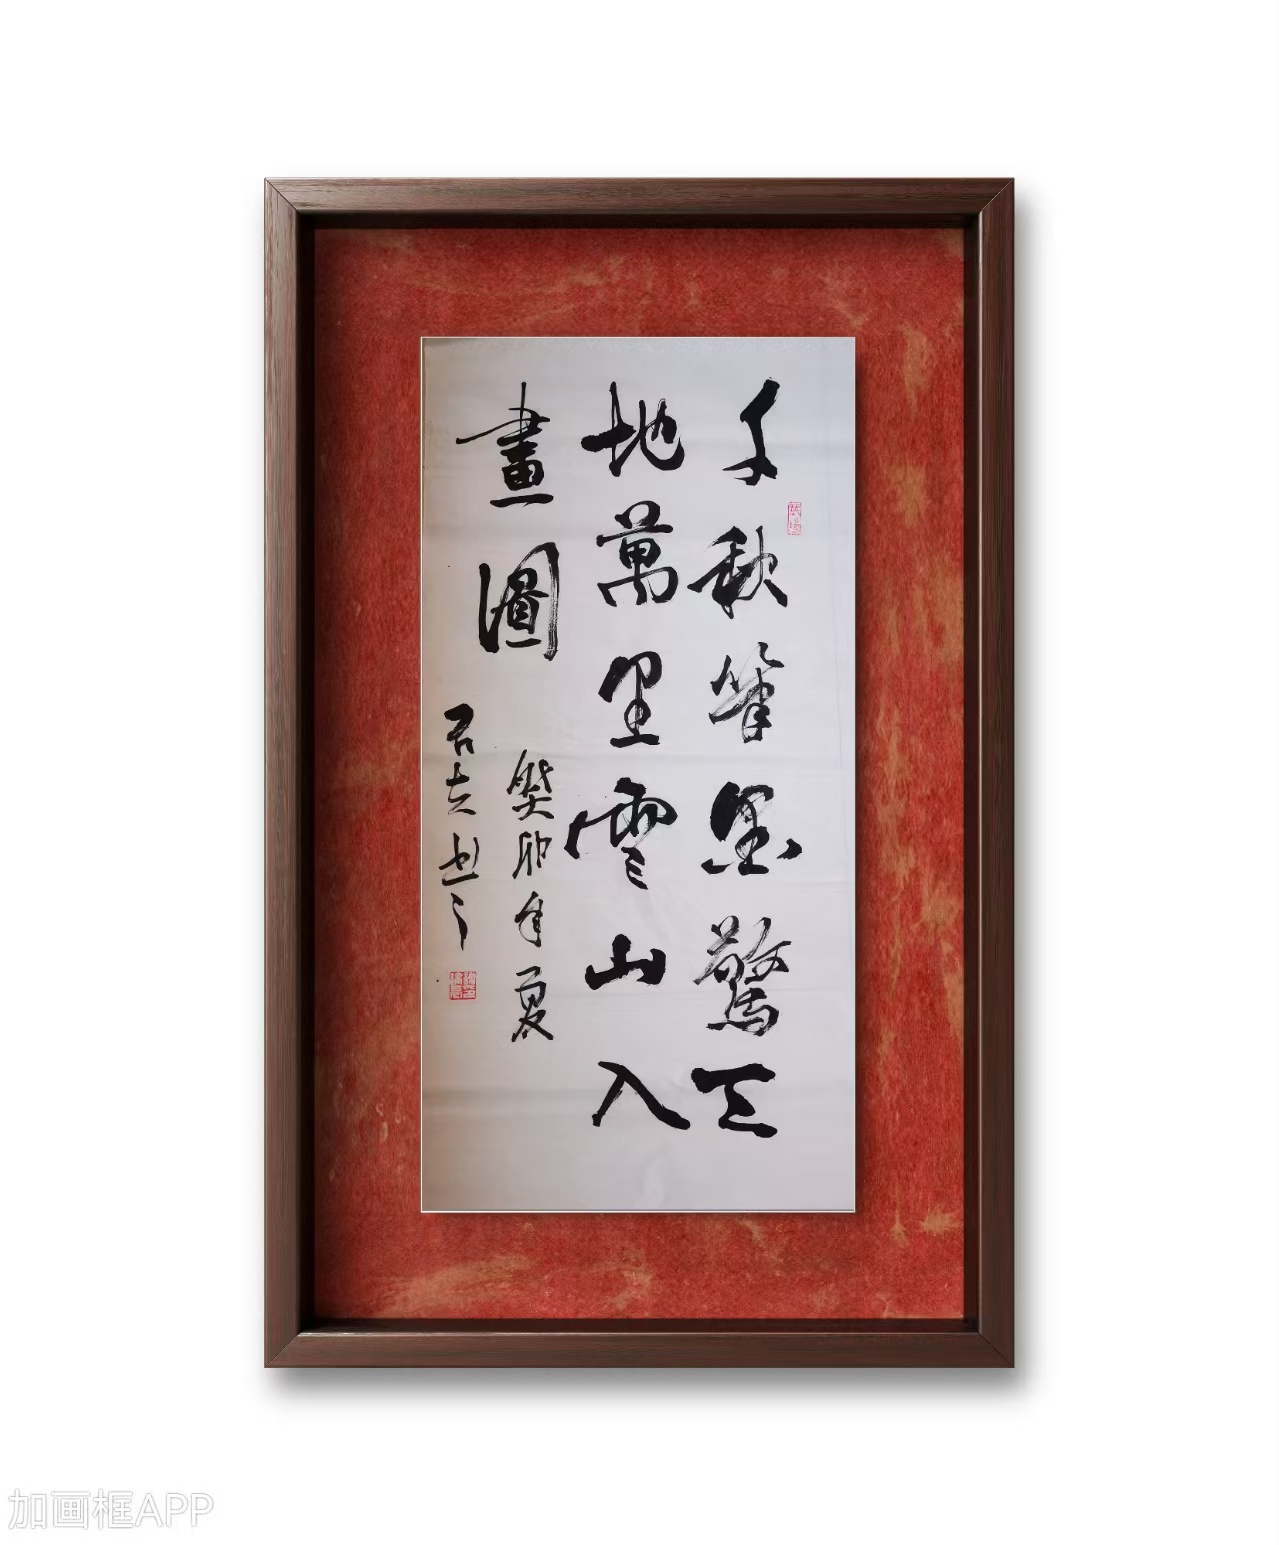 千秋筆墨驚天
地萬里雲山入
畫圖
癸卯年夏
加画框APP